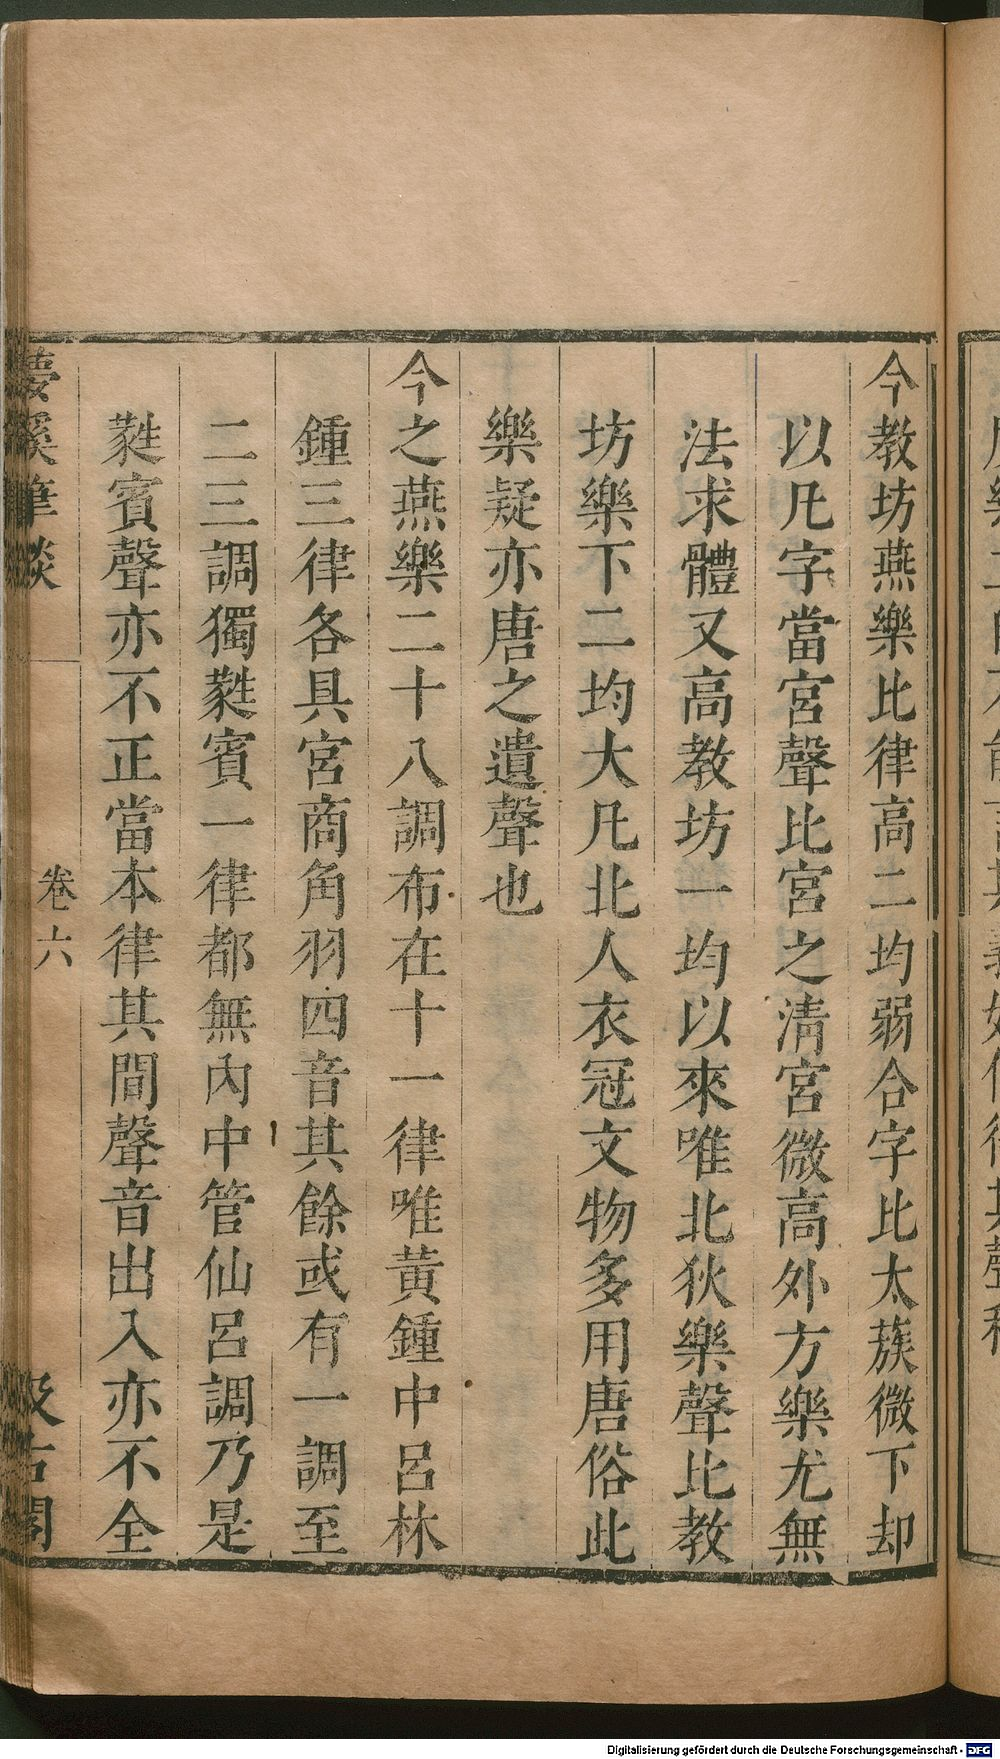 今教坊燕樂比律高二均弱合字比太蔟微下却
以凡字當宮聲比宮之清宮微高外方樂尤無
法求體又高教坊一均以來唯北狄樂聲比教
坊樂下二均大凡北人衣冠文物多用唐俗此
樂疑亦唐之遺聲也
今之燕樂二十八調布在十一律唯黃鍾中呂林
鍾三律各具宮商角羽四音其餘或有一調至
二三調獨蕤賓一律都無內中管仙呂調乃是
蕤賓聲亦不正當本律其間聲音出入亦不全
夢溪筆談
卷六
汲古閣
Digitalisierung gefördert durch die Deutsche Forschungsgemeinschaft - DFG